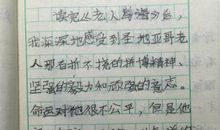 读完《老人与海》后，
我深深地感受到圣地亚哥老
人那百折不挠的拼搏精神、
坚强的毅力和顽强的意志。
命运对他很不公平，但是他